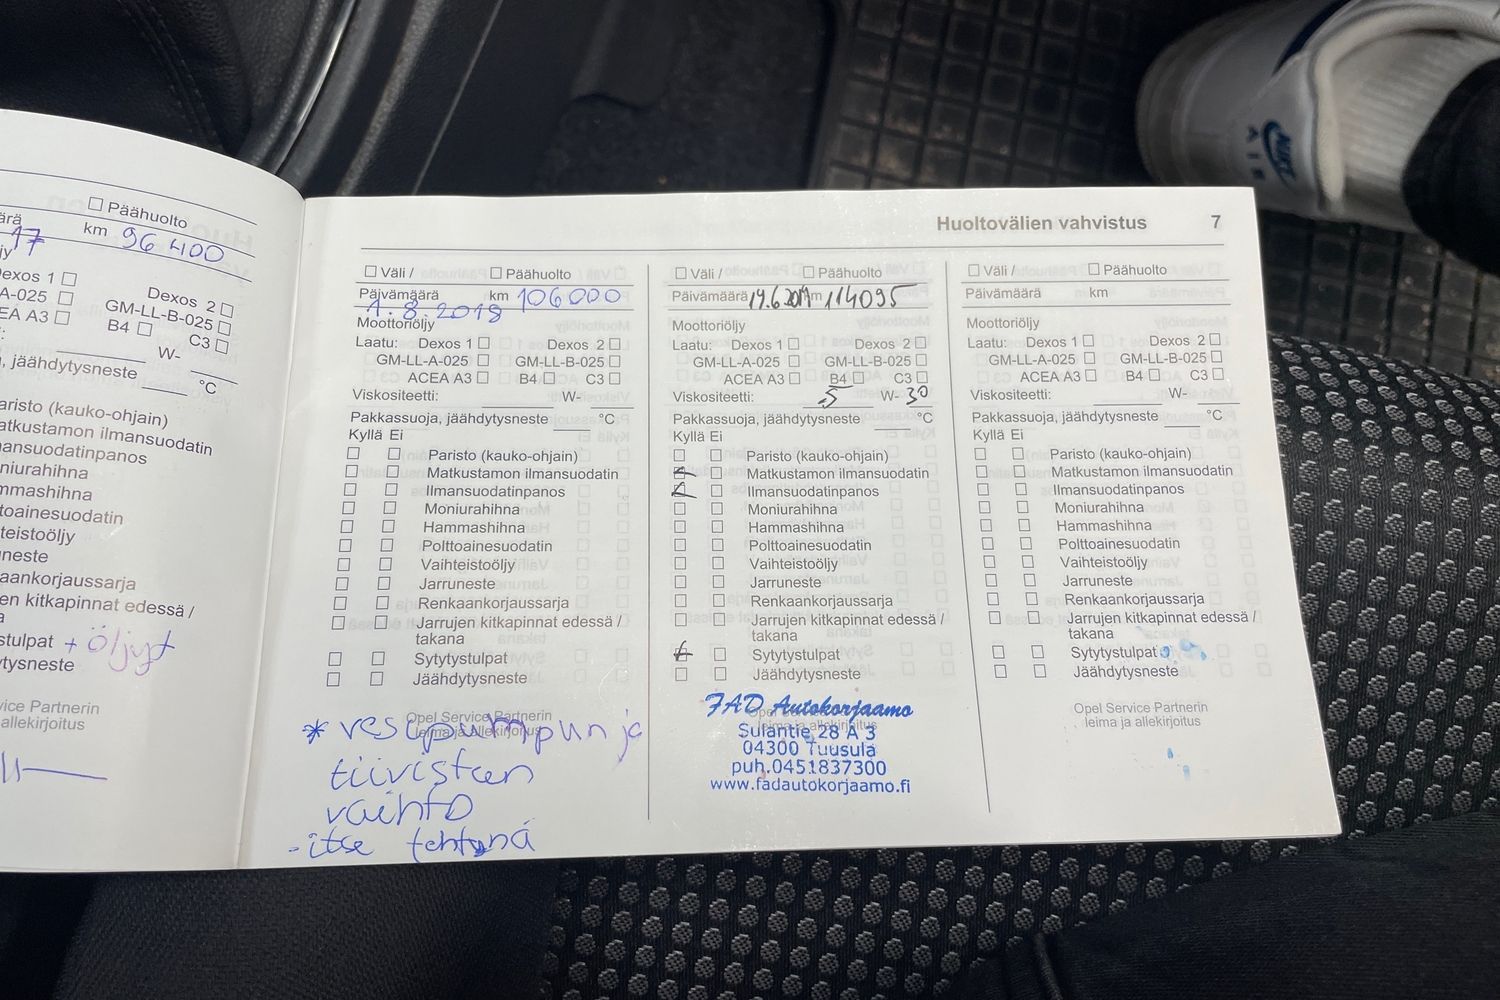 ☐ Päähuolto
km 96400
17
Dexos 1 ☐ Dexos 2 ☐
A-025 ☐ GM-LL-B-025 ☐
CEA A3 ☐ B4 ☐ C3 ☐
W-
jäähdytysneste °C
aristo (kauko-ohjain)
atkustamon ilmansuodatin
mansuodatinpanos
niurahihna
mmashihna
toainesuodatin
teistoöljy
uneste
aankorjaussarja
en kitkapinnat edessä /
a
stulpat + öljyt
ytysneste
vice Partnerin
allekirjoitus
Huoltovälien vahvistus 7
☐ Väli / ☐ Päähuolto
Päivämäärä km 106000
1.8.2018
Moottoriöljy
Laatu: Dexos 1 ☐ Dexos 2 ☐
GM-LL-A-025 ☐ GM-LL-B-025 ☐
ACEA A3 ☐ B4 ☐ C3 ☐
Viskositeetti: W-
Pakkassuoja, jäähdytysneste °C
Kyllä Ei
☐ ☐ Paristo (kauko-ohjain)
☐ ☐ Matkustamon ilmansuodatin
☐ ☐ Ilmansuodatinpanos
☐ ☐ Moniurahihna
☐ ☐ Hammashihna
☐ ☐ Polttoainesuodatin
☐ ☐ Vaihteistoöljy
☐ ☐ Jarruneste
☐ ☐ Renkaankorjaussarja
☐ ☐ Jarrujen kitkapinnat edessä /
takana
☐ ☐ Sytytystulpat
☐ ☐ Jäähdytysneste
Opel Service Partnerin
leima ja allekirjoitus
* vesipumpun ja
tiivisteen
vaihto
- itse tehtynä
☐ Väli / ☐ Päähuolto
Päivämäärä 14.6.2019 km 114095
Moottoriöljy
Laatu: Dexos 1 ☐ Dexos 2 ☐
GM-LL-A-025 ☐ GM-LL-B-025 ☐
ACEA A3 ☐ B4 ☐ C3 ☐
Viskositeetti: 5 W- 30
Pakkassuoja, jäähdytysneste °C
Kyllä Ei
☐ ☐ Paristo (kauko-ohjain)
☑ ☐ Matkustamon ilmansuodatin
☑ ☐ Ilmansuodatinpanos
☐ ☐ Moniurahihna
☐ ☐ Hammashihna
☐ ☐ Polttoainesuodatin
☐ ☐ Vaihteistoöljy
☐ ☐ Jarruneste
☐ ☐ Renkaankorjaussarja
☐ ☐ Jarrujen kitkapinnat edessä /
takana
☑ ☐ Sytytystulpat
☐ ☐ Jäähdytysneste
Opel Service Partnerin
leima ja allekirjoitus
FAD Autokorjaamo
Sulantie 28 A 3
04300 Tuusula
puh.0451837300
www.fadautokorjaamo.fi
☐ Väli / ☐ Päähuolto
Päivämäärä km
Moottoriöljy
Laatu: Dexos 1 ☐ Dexos 2 ☐
GM-LL-A-025 ☐ GM-LL-B-025 ☐
ACEA A3 ☐ B4 ☐ C3 ☐
Viskositeetti: W-
Pakkassuoja, jäähdytysneste °C
Kyllä Ei
☐ ☐ Paristo (kauko-ohjain)
☐ ☐ Matkustamon ilmansuodatin
☐ ☐ Ilmansuodatinpanos
☐ ☐ Moniurahihna
☐ ☐ Hammashihna
☐ ☐ Polttoainesuodatin
☐ ☐ Vaihteistoöljy
☐ ☐ Jarruneste
☐ ☐ Renkaankorjaussarja
☐ ☐ Jarrujen kitkapinnat edessä /
takana
☐ ☐ Sytytystulpat
☐ ☐ Jäähdytysneste
Opel Service Partnerin
leima ja allekirjoitus
NIKE
AIR